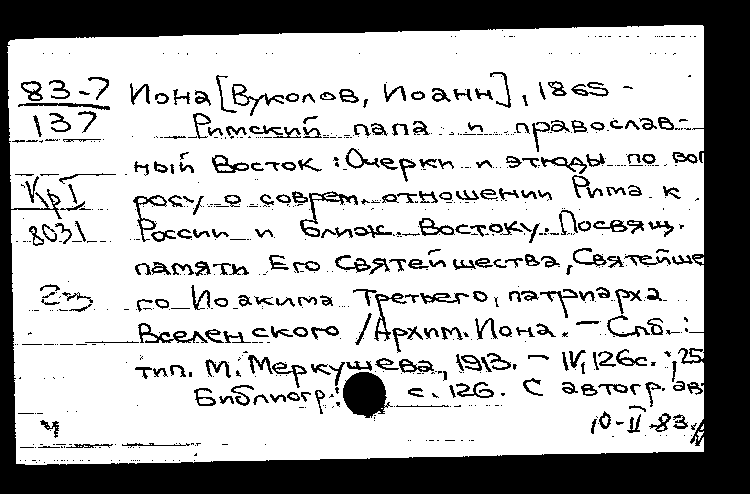 83-7 Иона [Вуколов, Иоанн], 1865 -
137 Римский папа и православ-
ный Восток : Очерки и этюды по воп
Кр I росу о соврем. отношении Рима к
8031 России и Ближ. Востоку. Посвящ.
памяти Его Святейшества, Святейше
го Иоакима Третьего, патриарха
Вселенского / Архим. Иона. - Спб. :
тип. М. Меркушева, 1913. - IV, 126с. ; 25
Библиогр.: с. 126. С автогр. ав
ч 10-II-83.